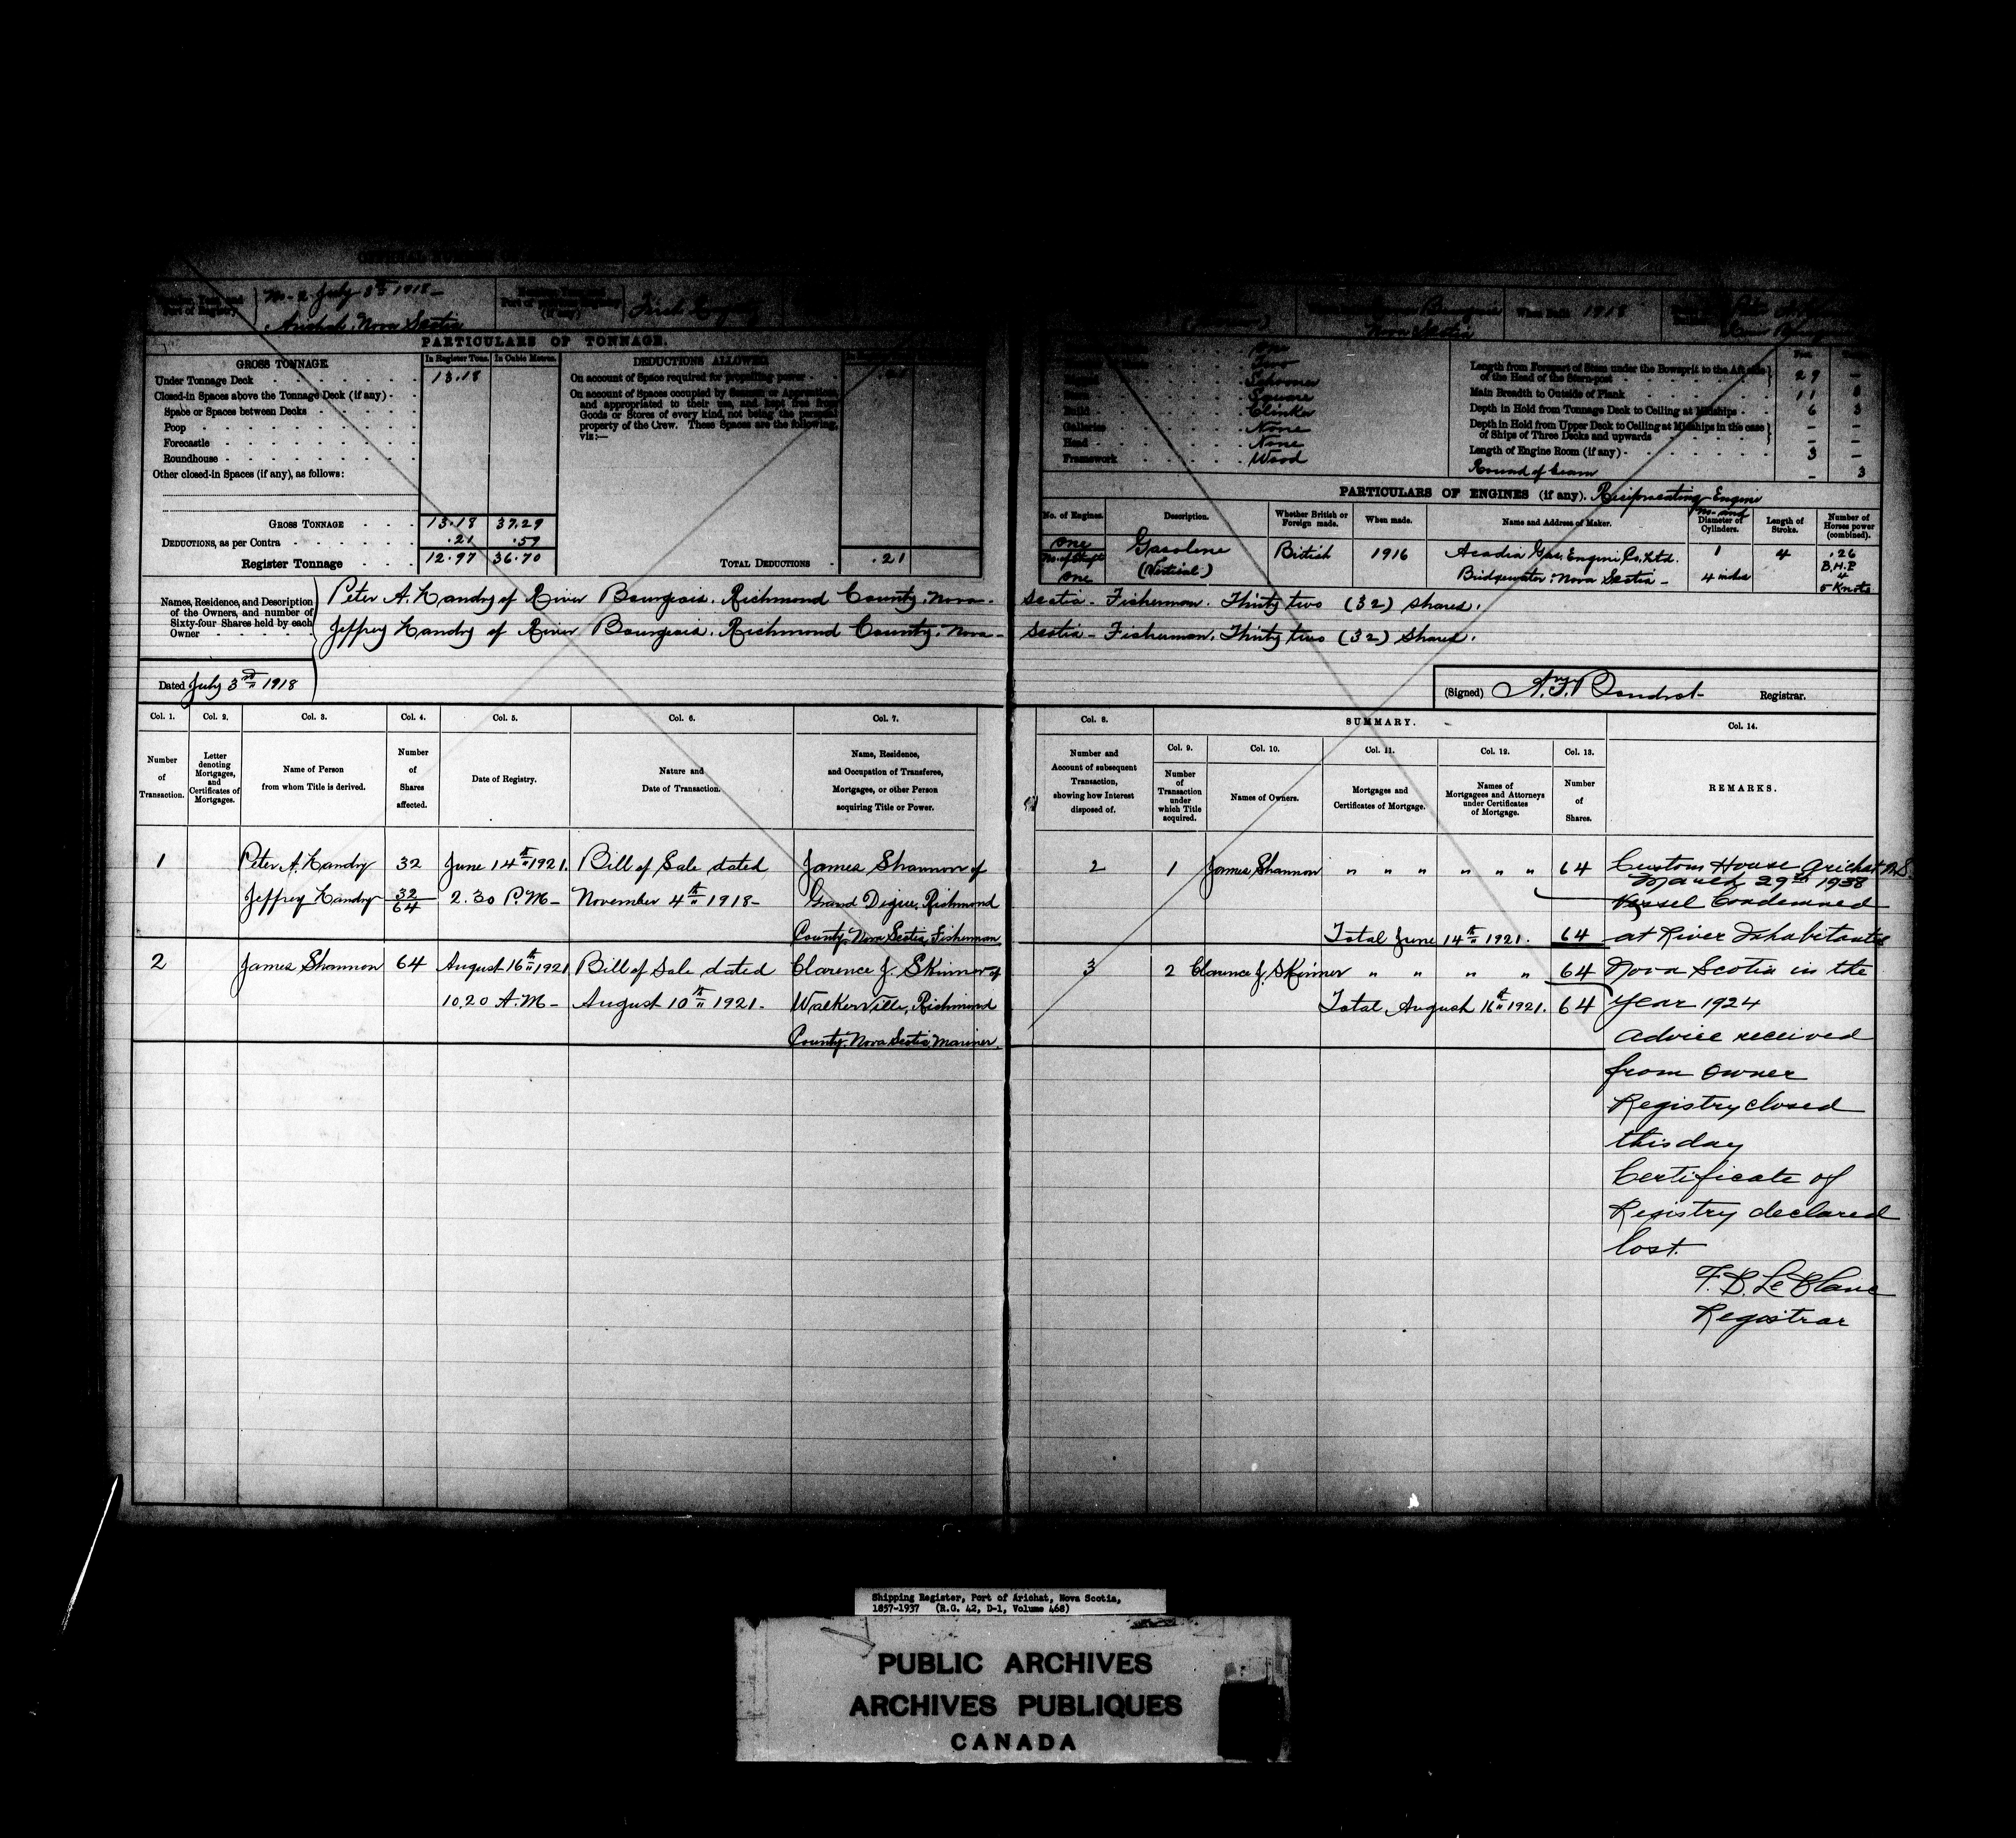 No. 2 July 3rd 1918
Arichat. Nova Scotia
First Registry
Nova Scotia
When Built 1918
PARTICULARS OF TONNAGE.
GROSS TONNAGE
In Register Tons.
In Cubic Metres.
Under Tonnage Deck
13.18
Closed-in Spaces above the Tonnage Deck (if any)
Space or Spaces between Decks
Poop
Forecastle
Roundhouse
Other closed-in Spaces (if any), as follows:
GROSS TONNAGE
13.18
37.29
DEDUCTIONS, as per Contra
.21
.59
Register Tonnage
12.97
36.70
DEDUCTIONS ALLOWED.
On account of Space required for propelling power
On account of Spaces occupied by Seamen or Apprentices
and appropriated to their use, and kept free from
Goods or Stores of every kind, not being the personal
property of the Crew. These Spaces are the following,
viz:—
TOTAL DEDUCTIONS
.21
Two
Schooner
Square
Build
Clinker
Galleries
None
Head
None
Framework
Wood
Length from Forepart of Stem under the Bowsprit to the Aft side
of the Head of the Stern-post
29 —
Main Breadth to Outside of Plank
11 8
Depth in Hold from Tonnage Deck to Ceiling at Midships
6 3
Depth in Hold from Upper Deck to Ceiling at Midships in the case
of Ships of Three Decks and upwards
— —
Length of Engine Room (if any)
3 —
Round of beam
— 3
PARTICULARS OF ENGINES (if any). Reciprocating Engine
No. of Engines.
Description.
Whether British or
Foreign made.
When made.
Name and Address of Maker.
No. and
Diameter of
Cylinders.
Length of
Stroke.
Number of
Horses power
(combined).
one
No. of Shafts
one
Gasoline
(Vertical)
British
1916
Acadia Gas Engine Co. Ltd.
Bridgewater. Nova Scotia —
1
4 inches
4
.26
B.H.P
4
5 Knots
Names, Residence, and Description
of the Owners, and number of
Sixty-four Shares held by each
Owner
Peter A. Landry of River Bourgeois. Richmond County. Nova Scotia — Fisherman. Thirty two (32) shares.
Jeffrey Landry of River Bourgeois. Richmond County. Nova Scotia — Fisherman. Thirty two (32) Shares.
Dated July 3rd 1918
(Signed)
Registrar.
Col. 1.
Col. 2.
Col. 3.
Col. 4.
Col. 5.
Col. 6.
Col. 7.
Col. 8.
SUMMARY.
Col. 14.
Number
of
Transaction.
Letter
denoting
Mortgages,
and
Certificates of
Mortgages.
Name of Person
from whom Title is derived.
Number
of
Shares
affected.
Date of Registry.
Nature and
Date of Transaction.
Name, Residence,
and Occupation of Transferee,
Mortgages, or other Person
acquiring Title or Power.
Number and
Account of subsequent
Transaction,
showing how Interest
disposed of.
Col. 9.
Number
of
Transaction
under
which Title
acquired.
Col. 10.
Names of Owners.
Col. 11.
Mortgages and
Certificates of Mortgage.
Col. 12.
Names of
Mortgagees and Attorneys
under Certificates
of Mortgage.
Col. 13.
Number
of
Shares.
REMARKS.
1
Peter A. Landry
Jeffrey Landry
32
32
64
June 14th 1921.
2.30 P.M —
Bill of Sale dated
November 4th 1918 —
James Shannon of
Grand Digue, Richmond
County. Nova Scotia, Fisherman
2
1
James Shannon
" " " " " "
64
Total June 14th 1921. 64
2
James Shannon
64
August 16th 1921
10.20 A.M —
Bill of Sale dated
August 10th 1921.
Clarence J. Skinner of
Walkerville, Richmond
County. Nova Scotia, Mariner.
3
2
Clarence J. Skinner
" " " "
64
Total August 16th 1921. 64
Custom House Arichat N.S.
March 29th 1938
Vessel Condemned
at River Inhabitants
Nova Scotia in the
year 1924
Advice received
from owner
Registry closed
this day
Certificate of
Registry declared
lost.
F. B. Le Blanc
Registrar
Shipping Register, Port of Arichat, Nova Scotia,
1857-1937 (R.G. 42, D-1, Volume 468)
PUBLIC ARCHIVES
ARCHIVES PUBLIQUES
CANADA